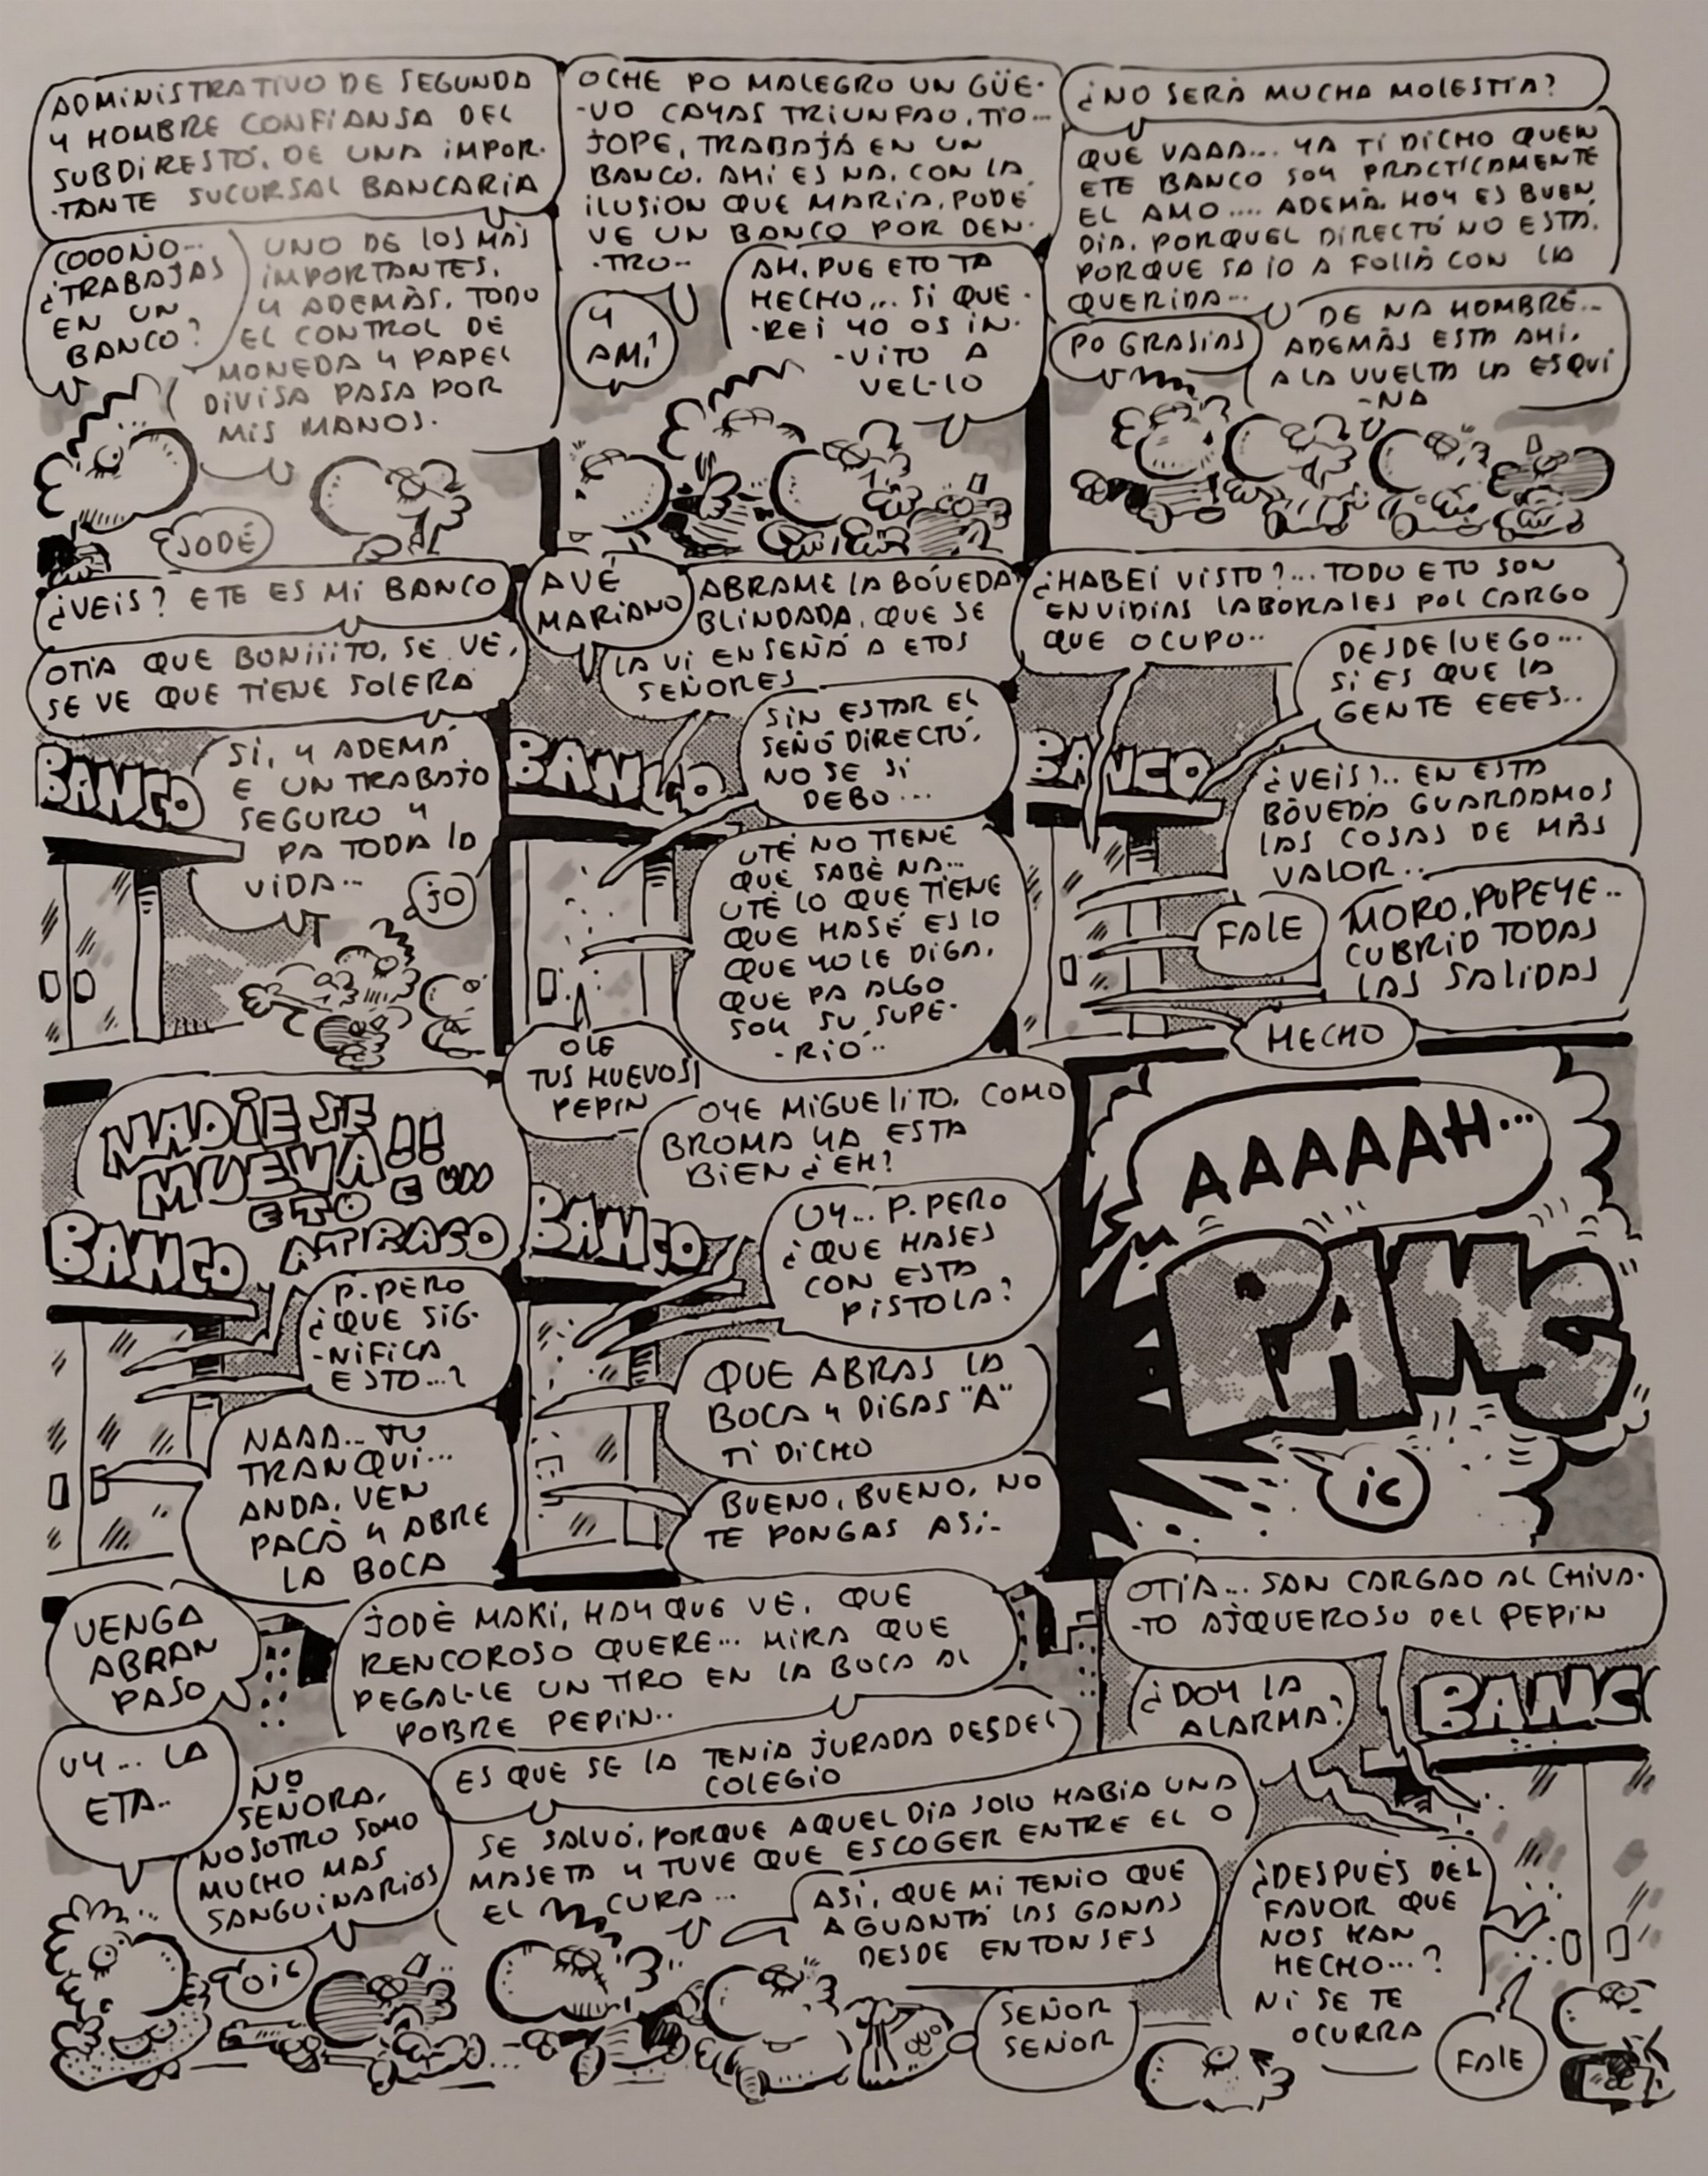 ADMINISTRATIVO DE SEGUNDA
Y HOMBRE CONFIANSA DEL
SUBDIRESTÓ. DE UNA IMPOR-
-TANTE SUCURSAL BANCARIA
COOOÑO...
¿TRABAJAS
EN UN
BANCO?
UNO DE LOS MAS
IMPORTANTES.
Y ADEMÁS. TODO
EL CONTROL DE
MONEDA Y PAPEL
DIVISA PASA POR
MIS MANOS.
JODÉ
OCHE PO MALEGRO UN GÜE-
-VO CAYAS TRIUNFAO, TIO...
JOPE, TRABAJÁ EN UN
BANCO. AHI ES NA. CON LA
ILUSION QUE MARIA. PODE
VE UN BANCO POR DEN-
-TRO..
Y
AMI
AH. PUE ETO TA
HECHO... SI QUE-
-REI YO OS IN-
-VITO A
VEL-LO
¿NO SERÁ MUCHA MOLESTIA?
QUE VAAA... YA TI DICHO QUEN
ETE BANCO SOY PRACTICAMENTE
EL AMO.... ADEMÁ. HOY ES BUEN
DIA. PORQUEL DIRECTÓ NO ESTÁ.
PORQUE SA IO A FOLLÁ CON LA
QUERIDA...
PO GRASIAS
DE NA HOMBRE...
ADEMÁS ESTA AHI.
A LA VUELTA LA ESQUI
-NA
¿VEIS? ETE ES MI BANCO
OTIA QUE BONIIITO, SE VE,
SE VE QUE TIENE SOLERA
BANCO
SI, Y ADEMÁ
E UN TRABAJO
SEGURO Y
PA TODA LA
VIDA...
JO
AVÉ
MARIANO
ABRAME LA BÓVEDA
BLINDADA. QUE SE
LA VI ENSEÑÁ A ETOS
SEÑORES
BANCO
SIN ESTAR EL
SEÑÓ DIRECTÓ.
NO SE SI
DEBO...
UTÉ NO TIENE
QUE SABÉ NA...
UTÉ LO QUE TIENE
QUE HASÉ ES LO
QUE YO LE DIGA.
QUE PA ALGO
SOY SU SUPE-
-RIÓ..
OLE
TUS HUEVOS
PEPIN
¿HABEI VISTO?... TODO ETO SON
ENVIDIAS LABORALES POL CARGO
QUE OCUPO..
DESDE LUEGO...
SI ES QUE LA
GENTE EEES..
BANCO
¿VEIS?.. EN ESTA
BÓVEDA GUARDAMOS
LAS COSAS DE MÁS
VALOR..
FALE
MORO, POPEYE..
CUBRID TODAS
LAS SALIDAS
HECHO
NADIE SE
MUEVA!!
ETO E UN
ATRASO
BANCO
P.PERO
¿QUE SIG-
-NIFICA
ESTO...?
NAAA... TU
TRANQUI...
ANDA. VEN
PACÁ Y ABRE
LA BOCA
OYE MIGUELITO, COMO
BROMA YA ESTA
BIEN ¿EH?
BANCO
UY... P.PERO
¿QUE HASES
CON ESTA
PISTOLA?
QUE ABRAS LA
BOCA Y DIGAS "A"
TI DICHO
BUENO, BUENO, NO
TE PONGAS ASI..
AAAAAH...
PANG
IC
VENGA
ABRAN
PASO
UY... LA
ETA..
NO
SEÑORA.
NOSOTRO SOMO
MUCHO MAS
SANGUINARIOS
OIC
JODÉ MAKI, HAY QUE VE. QUE
RENCOROSO QUERE... MIRA QUE
PEGAL-LE UN TIRO EN LA BOCA AL
POBRE PEPIN..
ES QUE SE LA TENIA JURADA DESDEL
COLEGIO
SE SALVÓ, PORQUE AQUEL DIA SOLO HABIA UNA
MASETA Y TUVE QUE ESCOGER ENTRE EL O
EL CURA...
ASI, QUE MI TENIO QUE
AGUANTÁ LAS GANAS
DESDE ENTONSES
SEÑOR
SEÑOR
OTIA... SAN CARGAO AL CHIVA-
-TO ASQUEROSO DEL PEPIN
¿DOY LA
ALARMA?
BANC
¿DESPUÉS DEL
FAVOR QUE
NOS HAN
HECHO...?
NI SE TE
OCURRA
FALE